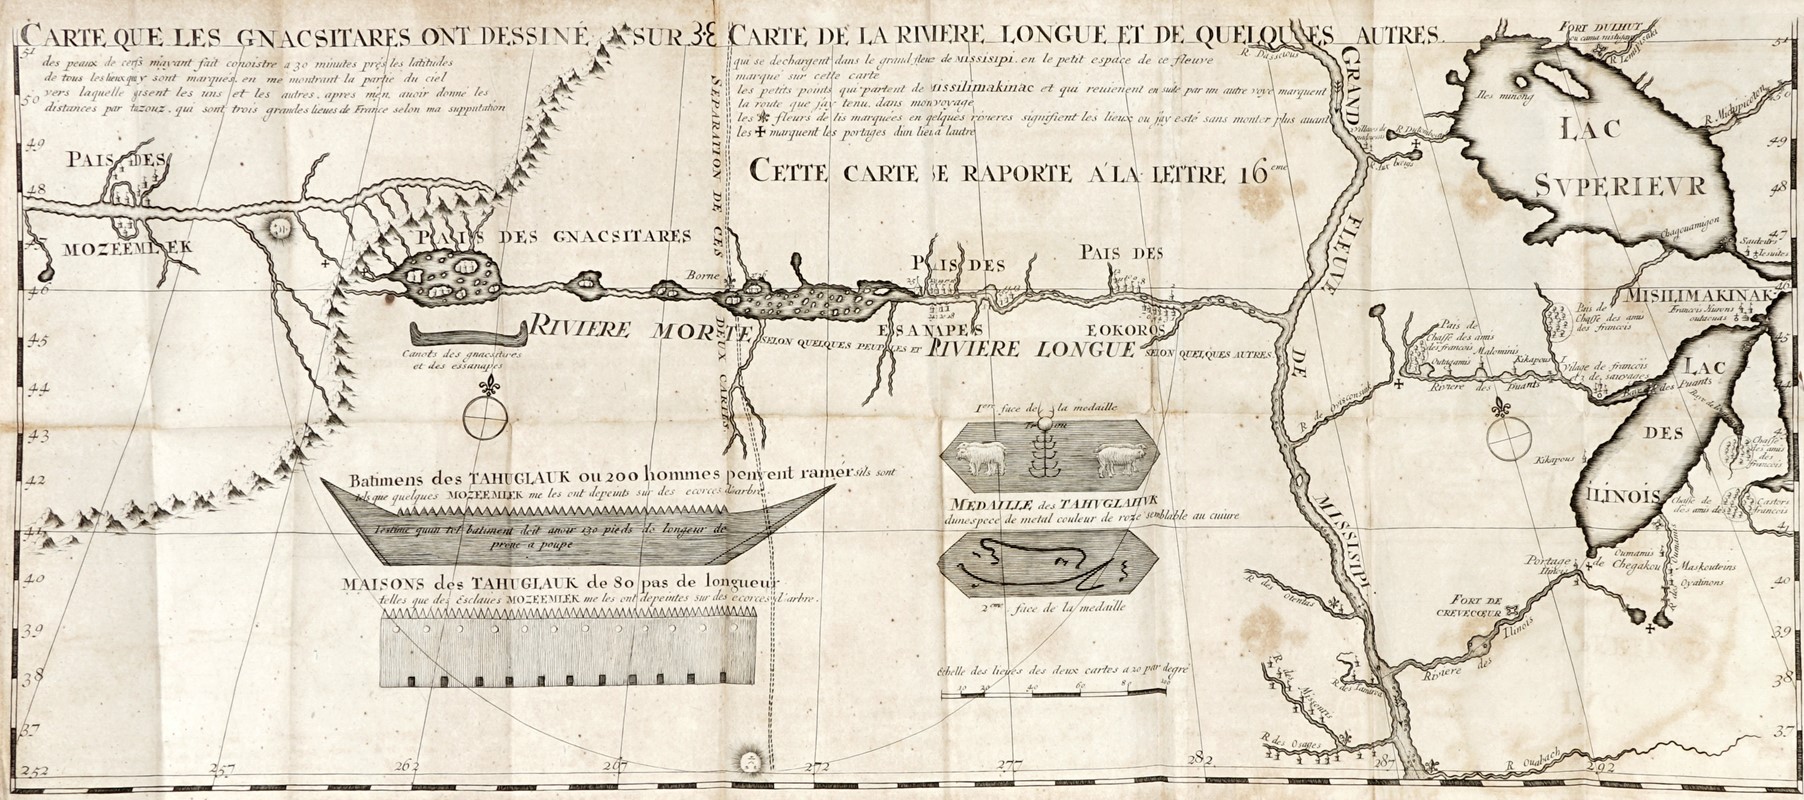 CARTE QUE LES GNACSITARES ONT DESSINÉ SUR
des peaux de cerfs m'ayant fait conoistre a 30 minutes prés les latitudes
de tous les lieux qui y sont marqués, en me montrant la partie du ciel
vers laquelle gisent les uns et les autres, apres m'en auoir donné les
distances par tazouz, qui sont trois grandes lieues de France selon ma supputation
CARTE DE LA RIVIERE LONGUE ET DE QUELQUES AUTRES.
qui se dechargent dans le grand fleuve de MISSISIPI, en le petit espace de ce fleuve
marqué sur cette carte
les petits points qui partent de Missilimakinac et qui reuienent en suite par un autre voye marquent
la route que j'ay tenu, dans mon voyage
les fleurs de lis marquées en quelques riuieres signifient les lieux ou j'ay esté sans monter plus auant
les ✠ marquent les portages d'un lieu a l'autre
CETTE CARTE SE RAPORTE A LA LETTRE 16eme
SEPARATION DE CES DEUX CARTES
PAIS DES
MOZEEMLEK
PAIS DES GNACSITARES
Borne
Canots des gnacsitares
et des essanapes
RIVIERE MORTE
SELON QUELQUES PEUPLES ET
RIVIERE LONGUE
SELON QUELQUES AUTRES
PAIS DES
ESANAPES
PAIS DES
EOKOROS
Batimens des TAHUGLAUK ou 200 hommes peuvent ramer s'ils sont
tels que quelques MOZEEMLEK me les ont depeints sur des ecorces d'arbre
J'estime qu'un tel batiment doit auoir 130 pieds de longeur de
proue a poupe
MAISONS des TAHUGLAUK de 80 pas de longueur
telles que des Esclaves MOZEEMLEK me les ont depeintes sur des ecorces d'arbre.
1ere face de la medaille
Trou
MEDAILLE des TAHUGLAHUK
d'unespece de metal couleur de roze semblable au cuiure
2eme face de la medaille
échelle des lieues des deux cartes a 20 par degré
GRAND
FLEUVE
DE
MISSISIPI
FORT DULHUT
R. Lemipisaki
Iles minong
LAC
SVPERIEVR
Chagouamigon
MISILIMAKINAK
François Hurons
outaouas
Pais de
Chasse des amis
des francois
Pais de
Chasse des amis
des francois
Outagamis
Malominis
Kikapous
Vilage de françois
et de sauvages
Riviere des Puants
Baye des Puants
R. de Ouisconsink
LAC
DES
ILINOIS
Kikapous
Chasse
des amis
des
francois
Chasse de
des amis de
Castors
francois
Oumamis
Portage
de Chegakou
Maskouteins
Oyatinons
R. des Oumamis
FORT DE
CREVECŒUR
Riviere des Ilinois
R. des Otentas
R. des Missouris
R. des Osages
R. Ouabach
51
50
49
48
47
46
45
44
43
42
41
40
39
38
37
252
257
262
267
272
277
282
287
292